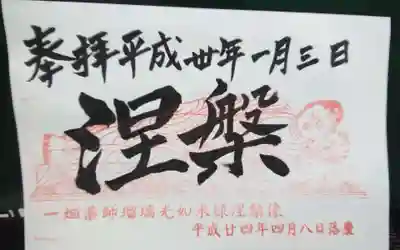 奉拝平成卅年一月三日
涅槃
一畑薬師瑠璃光如来様涅槃像
平成廿四年四月八日落慶